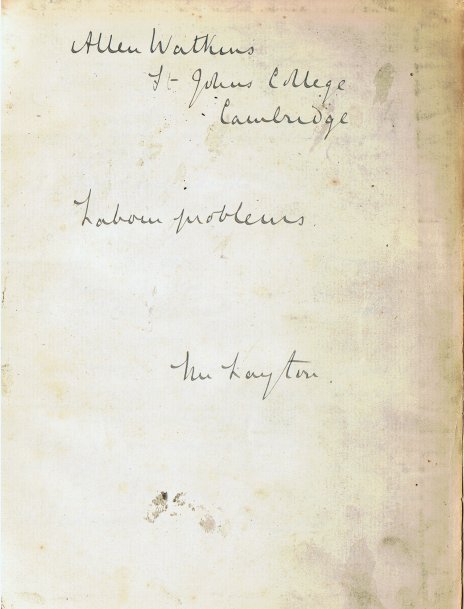 Allen Watkins
St Johns College
Cambridge
Labour problems.
Mr Layton.